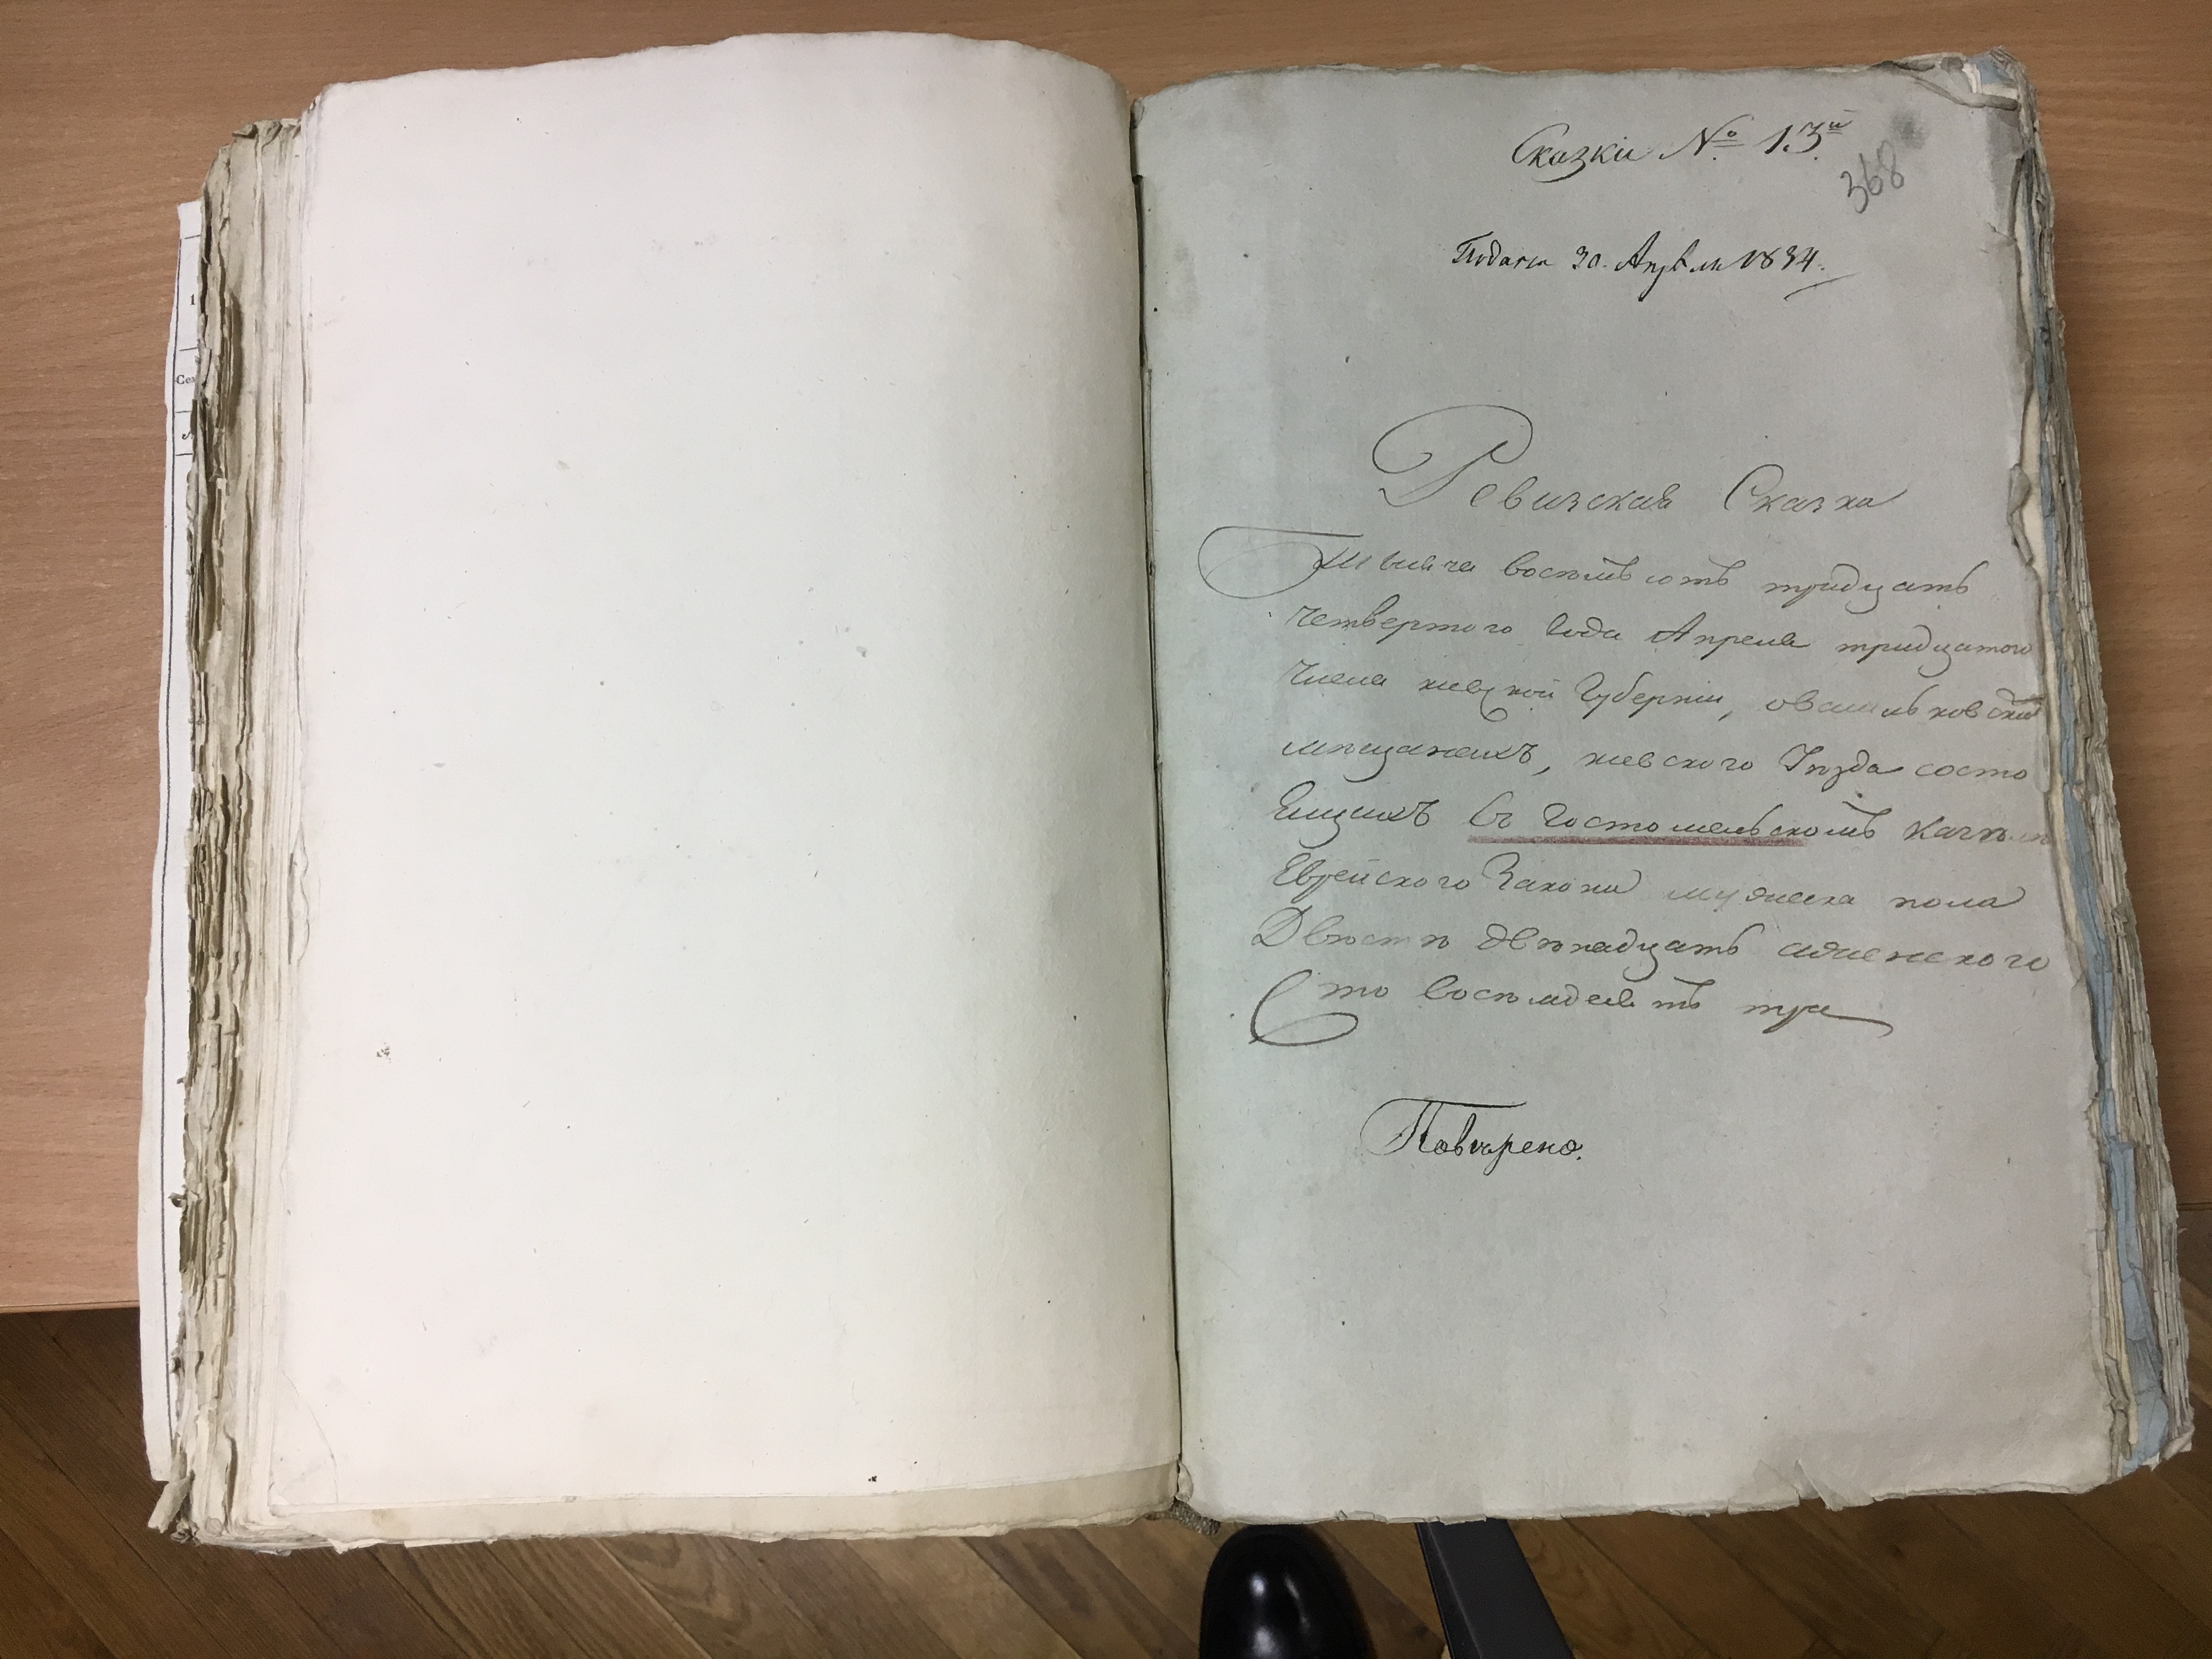 1
Сказки № 13й
368
Подана 30. Апреля 1834.
Ревизская Сказка
Тысяча восемьсотъ тридцать
четвертого года Апреля тридцатого
числа киевской Губернии, овасильковских
мѣщанехъ, киевского Уѣзда состо
Ещихъ въ Гостомельскомъ кагалѣ
Еврейского Закона мужеска пола
Двѣсти двѣнадцать аженского
Сто восемдесятъ три
Повѣрено.